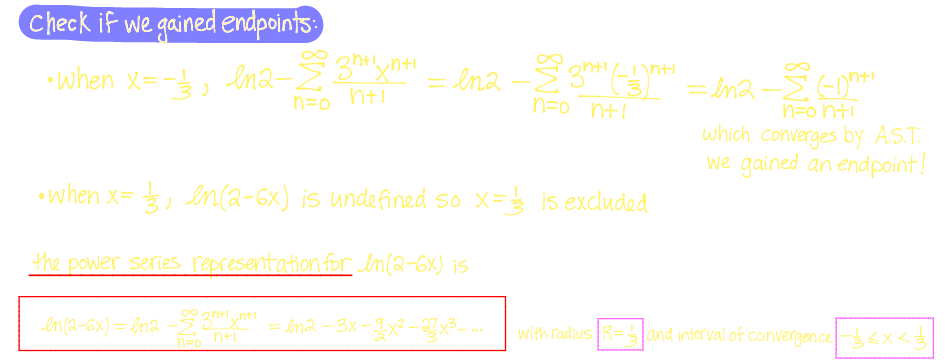 Check if we gained endpoints:
• when x = -1/3, ln2 - ∑_{n=0}^{∞} 3^{n+1}x^{n+1}/(n+1) = ln2 - ∑_{n=0}^{∞} 3^{n+1}(-1/3)^{n+1}/(n+1) = ln2 - ∑_{n=0}^{∞} (-1)^{n+1}/(n+1)
which converges by A.S.T.
we gained an endpoint!
• when x = 1/3, ln(2-6x) is undefined so x = 1/3 is excluded
the power series representation for ln(2-6x) is
ln(2-6x) = ln2 - ∑_{n=0}^{∞} 3^{n+1}x^{n+1}/(n+1) = ln2 - 3x - 9/2 x² - 27/3 x³ - ... with radius R = 1/3 and interval of convergence -1/3 ≤ x < 1/3